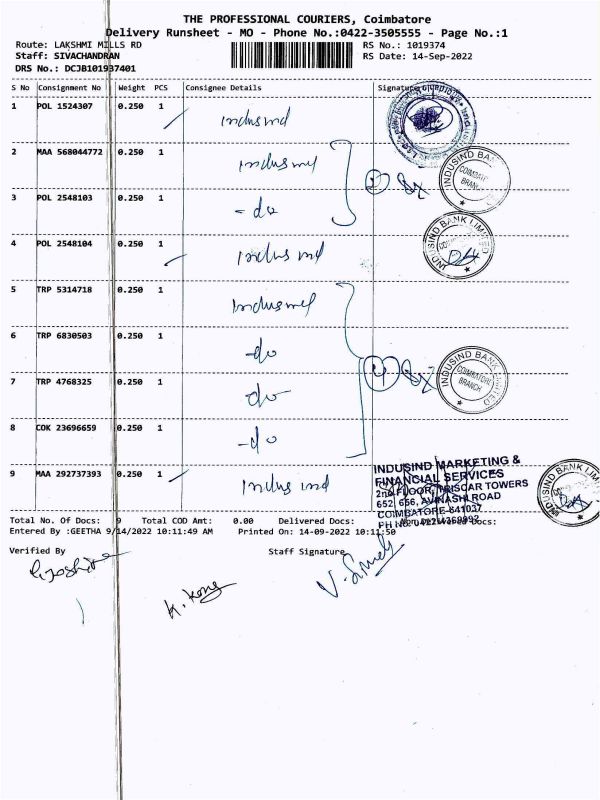 THE PROFESSIONAL COURIERS, Coimbatore
Delivery Runsheet - MO - Phone No.:0422-3505555 - Page No.:1
Route: LAKSHMI MILLS RD RS No.: 1019374
Staff: SIVACHANDRAN RS Date: 14-Sep-2022
DRS No.: DCJB101937401
S No Consignment No Weight PCS Consignee Details Signature
1 POL 1524307 0.250 1 Indusind
2 MAA 568044772 0.250 1 Indusind
INDUSIND BANK
COIMBATORE
BRANCH
3 POL 2548103 0.250 1 - do
4 POL 2548104 0.250 1 Indus ind
INDUSIND BANK LIMITED
5 TRP 5314718 0.250 1 Indusind
6 TRP 6830503 0.250 1 -do
7 TRP 4768325 0.250 1 do
4
INDUSIND BANK LIMITED
COIMBATORE
BRANCH
8 COK 23696659 0.250 1 -do
9 MAA 292737393 0.250 1 Indus ind
INDUSIND MARKETING &
FINANCIAL SERVICES
2nd FLOOR, TRISCAR TOWERS
652, 656, AVINASHI ROAD
COIMBATORE-641037
INDUSIND BANK LIMITED
Total No. Of Docs: 9 Total COD Amt: 0.00 Delivered Docs:
Entered By :GEETHA 9/14/2022 10:11:49 AM Printed On: 14-09-2022 10:11:50
Verified By Staff Signature